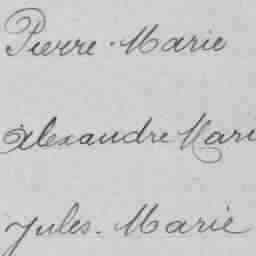 Pierre-Marie
Alexandre Mari
Jules-Marie